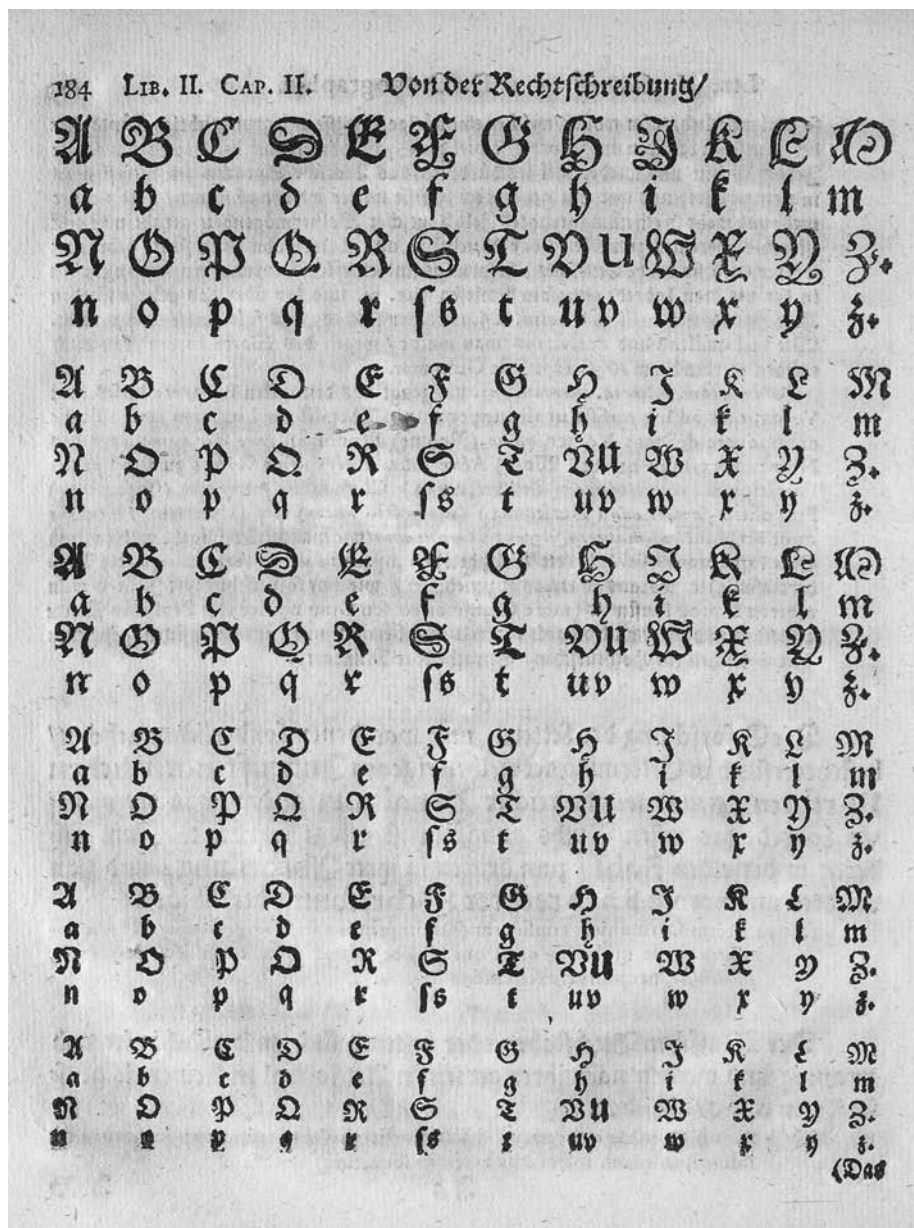 184 LIB. II. CAP. II. Von der Rechtschreibung/
A B C D E F G H J K L M
a b c d e f g h i k l m
N O P Q. R S T V U W X Y Z.
n o p q r ſ s t u v w x y z.
A B C D E F G H J K L M
a b c d e f g h i k l m
N O P Q R S T V U W X Y Z.
n o p q r ſ s t u v w x y z.
A B C D E F G H J K L M
a b c d e f g h i k l m
N O P Q R S T V U W X Y Z.
n o p q r ſ s t u v w x y z.
A B C D E F G H J K L M
a b c d e f g h i k l m
N O P Q R S T V U W X Y Z.
n o p q r ſ s t u v w x y z.
A B C D E F G H J K L M
a b c d e f g h i k l m
N O P Q R S T V U W X Y Z.
n o p q r ſ s t u v w x y z.
A B C D E F G H J K L M
a b c d e f g h i k l m
N O P Q R S T V U W X Y Z.
n o p q r ſ s t u v w x y z.
(Das